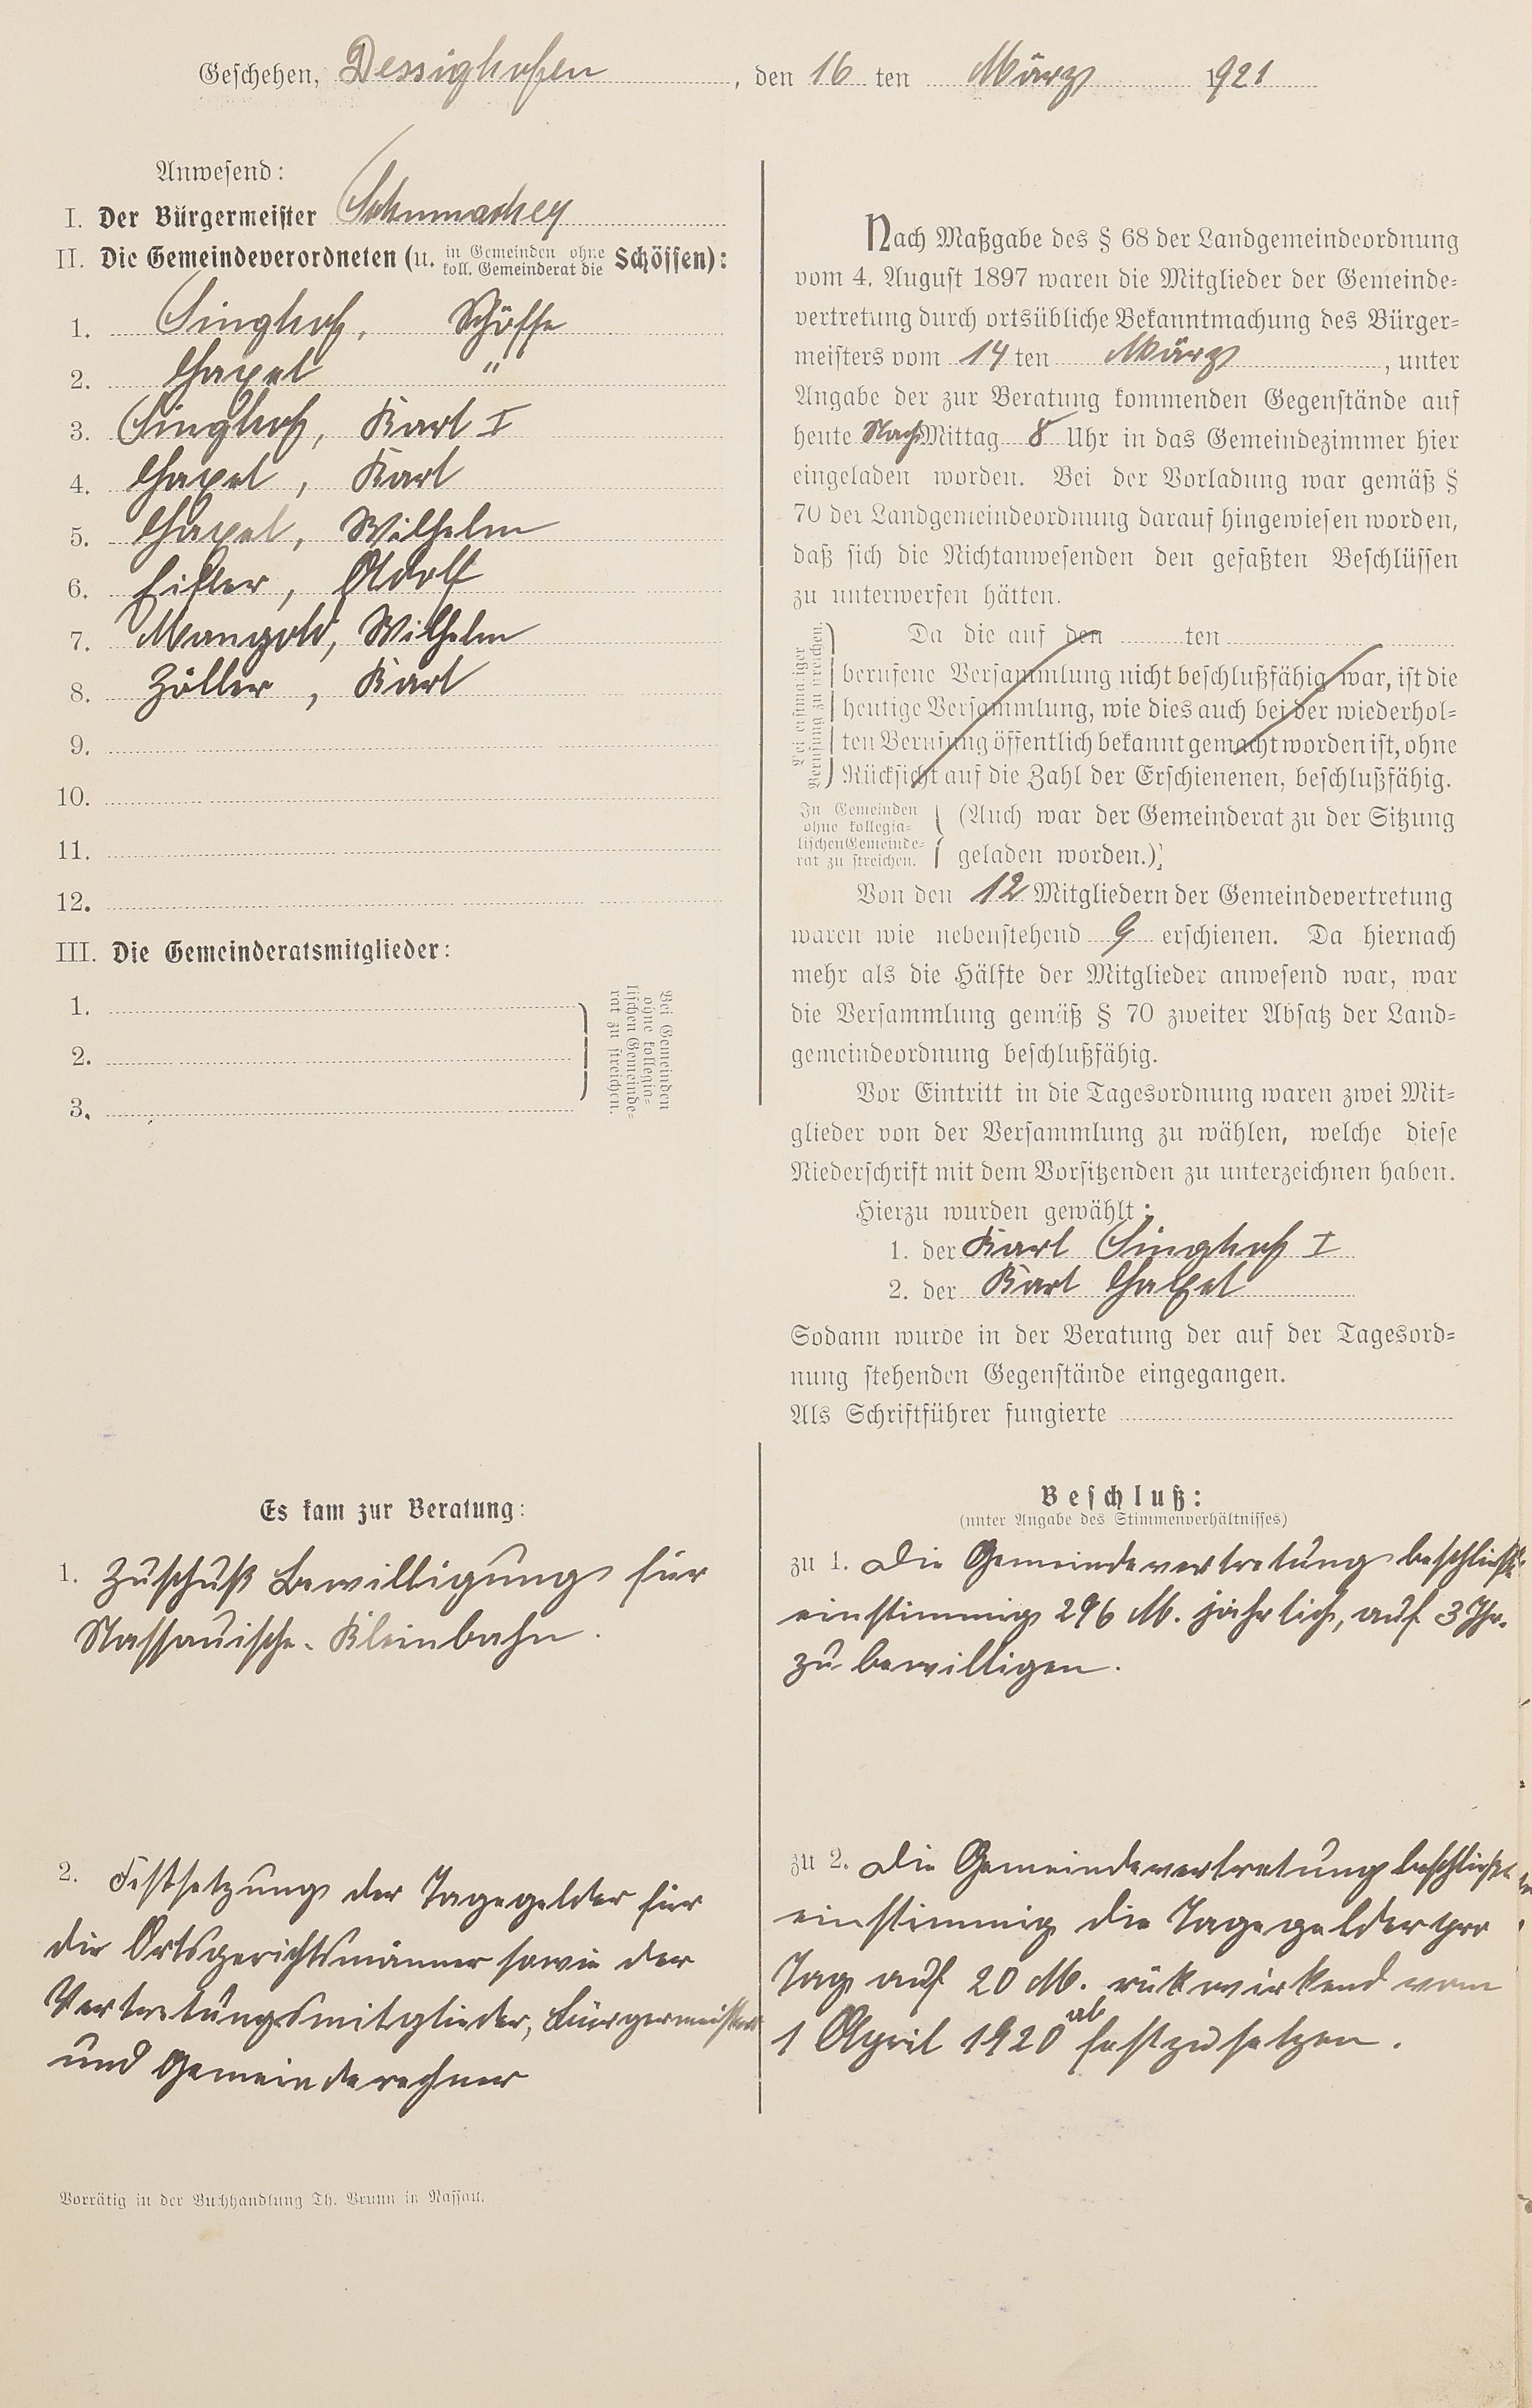 Geschehen, Dessighofen, den 16 ten März 1921
Anwesend:
I. Der Bürgermeister Schumacher
II. Die Gemeindeverordneten (u. in Gemeinden ohne koll. Gemeinderat die Schöffen):
1. Singhof, Schöffe
2. Chapel "
3. Singhof, Karl I
4. Chapel, Karl
5. Chapel, Wilhelm
6. Adolf
7. Mangold, Wilhelm
8. Zöller, Karl
9.
10.
11.
12.
III. Die Gemeinderatsmitglieder:
1.
2.
3.
Bei Gemeinden
ohne kollegia-
lischen Gemeinde-
rat zu streichen.
Nach Maßgabe des § 68 der Landgemeindeordnung
vom 4. August 1897 waren die Mitglieder der Gemeinde-
vertretung durch ortsübliche Bekanntmachung des Bürger-
meisters vom 14 ten März, unter
Angabe der zur Beratung kommenden Gegenstände auf
heute Nach Mittag 8 Uhr in das Gemeindezimmer hier
eingeladen worden. Bei der Vorladung war gemäß §
70 der Landgemeindeordnung darauf hingewiesen worden,
daß sich die Nichtanwesenden den gefaßten Beschlüssen
zu unterwerfen hätten.
Bei erstmaliger
Berufung zu streichen.
Da die auf den ten
berufene Versammlung nicht beschlußfähig war, ist die
heutige Versammlung, wie dies auch bei der wiederhol-
ten Berufung öffentlich bekannt gemacht worden ist, ohne
Rücksicht auf die Zahl der Erschienenen, beschlußfähig.
In Gemeinden
ohne kollegia-
lischen Gemeinde-
rat zu streichen.
(Auch war der Gemeinderat zu der Sitzung
geladen worden.)
Von den 12 Mitgliedern der Gemeindevertretung
waren wie nebenstehend 9 erschienen. Da hiernach
mehr als die Hälfte der Mitglieder anwesend war, war
die Versammlung gemäß § 70 zweiter Absatz der Land-
gemeindeordnung beschlußfähig.
Vor Eintritt in die Tagesordnung waren zwei Mit-
glieder von der Versammlung zu wählen, welche diese
Niederschrift mit dem Vorsitzenden zu unterzeichnen haben.
Hierzu wurden gewählt:
1. der Karl Singhof I
2. der Karl Chapel
Sodann wurde in der Beratung der auf der Tagesord-
nung stehenden Gegenstände eingegangen.
Als Schriftführer fungierte
Es kam zur Beratung:
1. Zuschuß Bewilligung für
Nassauische-Kleinbahn.
2. Festsetzung der Tagegelder für
die Ortsgerichtsmänner sowie der
Vertretungsmitglieder, Bürgermeister
und Gemeinderechner
Beschluß:
(unter Angabe des Stimmenverhältnisses)
zu 1. Die Gemeindevertretung beschließt
einstimmig 296 M. jährlich, auf 3 Jhr.
zu bewilligen.
zu 2. Die Gemeindevertretung beschließt
einstimmig die Tagegelder pro
Tag auf 20 M. rükwirkend vom
1 April 1920 ab festzusetzen.
Vorrätig in der Buchhandlung Th. Brunn in Nassau.